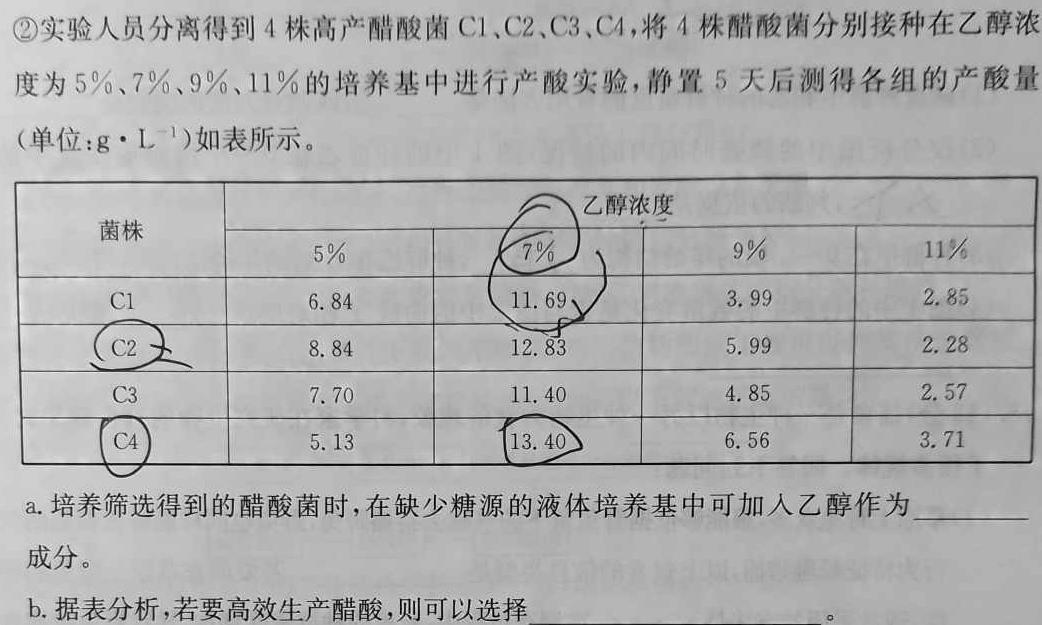 ②实验人员分离得到 4 株高产醋酸菌 C1、C2、C3、C4,将 4 株醋酸菌分别接种在乙醇浓
度为 5%、7%、9%、11%的培养基中进行产酸实验,静置 5 天后测得各组的产酸量
(单位:g·L⁻¹)如表所示。
菌株 乙醇浓度
5% 7% 9% 11%
C1 6.84 11.69 3.99 2.85
C2 8.84 12.83 5.99 2.28
C3 7.70 11.40 4.85 2.57
C4 5.13 13.40 6.56 3.71
a. 培养筛选得到的醋酸菌时,在缺少糖源的液体培养基中可加入乙醇作为
成分。
b. 据表分析,若要高效生产醋酸,则可以选择 。